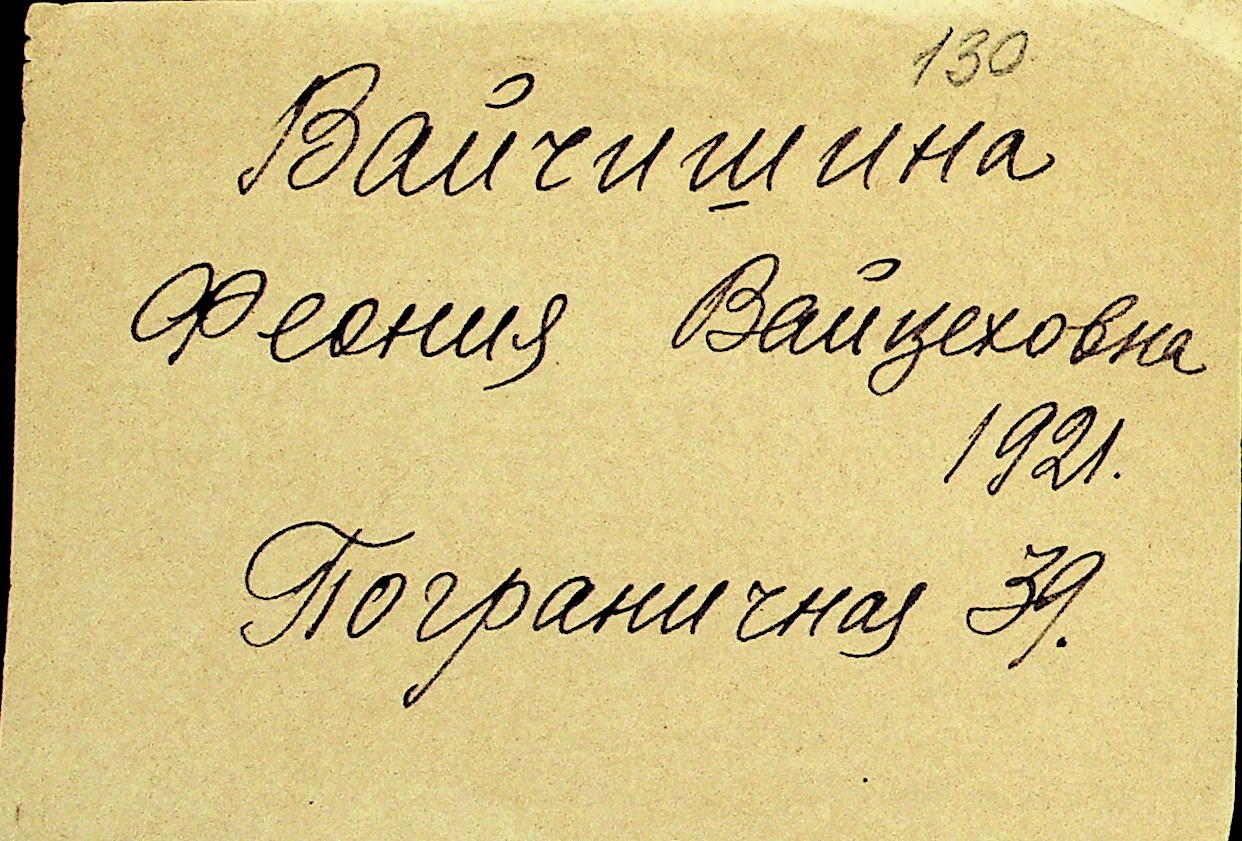 130
Вайчишина
Феония Вайцеховна
1921.
Пограничная 39.